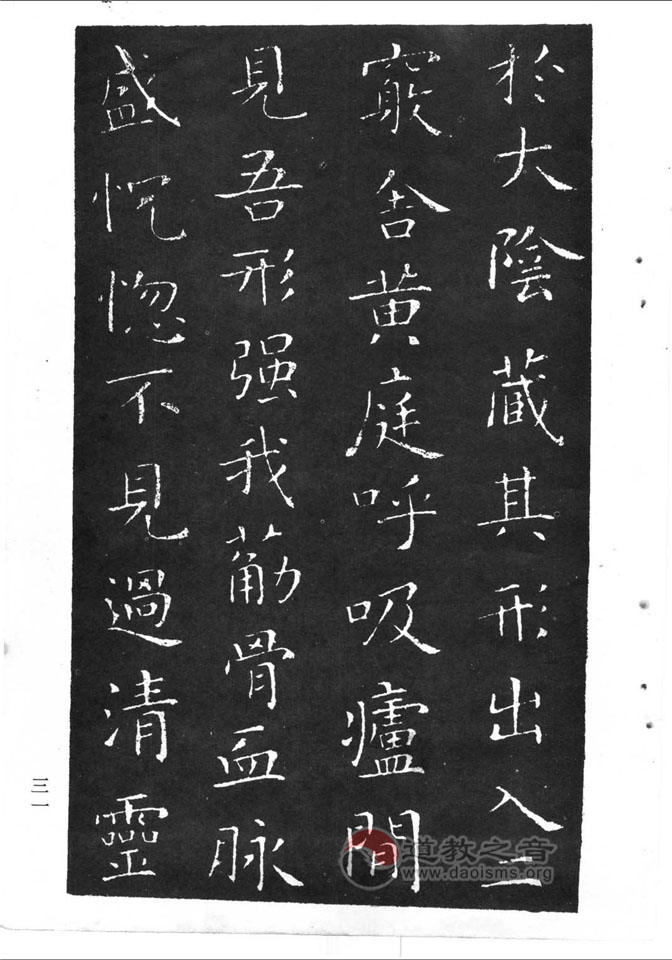 於大陰藏其形出入二
竅舍黄庭呼吸廬間
見吾形强我筋骨血脉
盛恍惚不見過清靈
三一
道教之音
www.daoisms.org